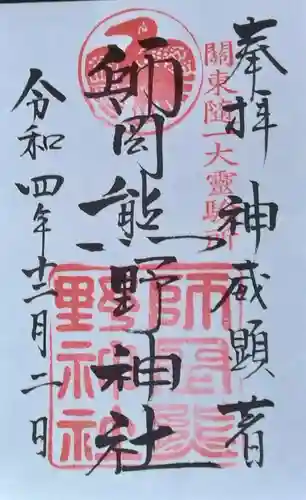 奉拝 神威顕著
關東随一大靈驗所
師岡熊野神社
令和四年十二月二日
師岡熊
野神社